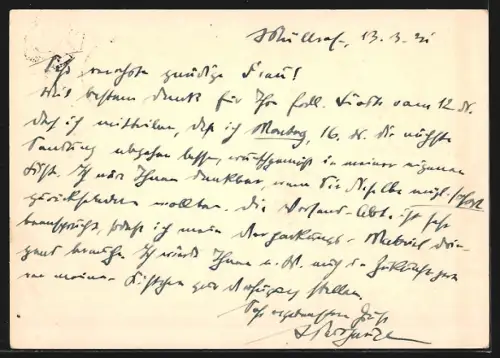 Müllrose, 13.3.31
Sehr verehrte gnädige Frau!
Mit bestem Dank für Ihre frdl. Karte vom 12. ds.
darf ich mitteilen, daß ich Montag, 16. ds. die nächste
Sendung abgehen lasse, in meiner eigenen
Kiste. Ich wäre Ihnen dankbar, wenn Sie dieselbe mögl. sofort
zurücksenden wollten. Die Versand-Abt. ist sehr
beansprucht, sodaß ich mein Verpackungs-Material drin-
gend brauche. Ich würde Ihnen u. U. auch in Zukunft gern
eine meiner Kistchen zur Verfügung stellen.
Sehr ergebensten Gruß